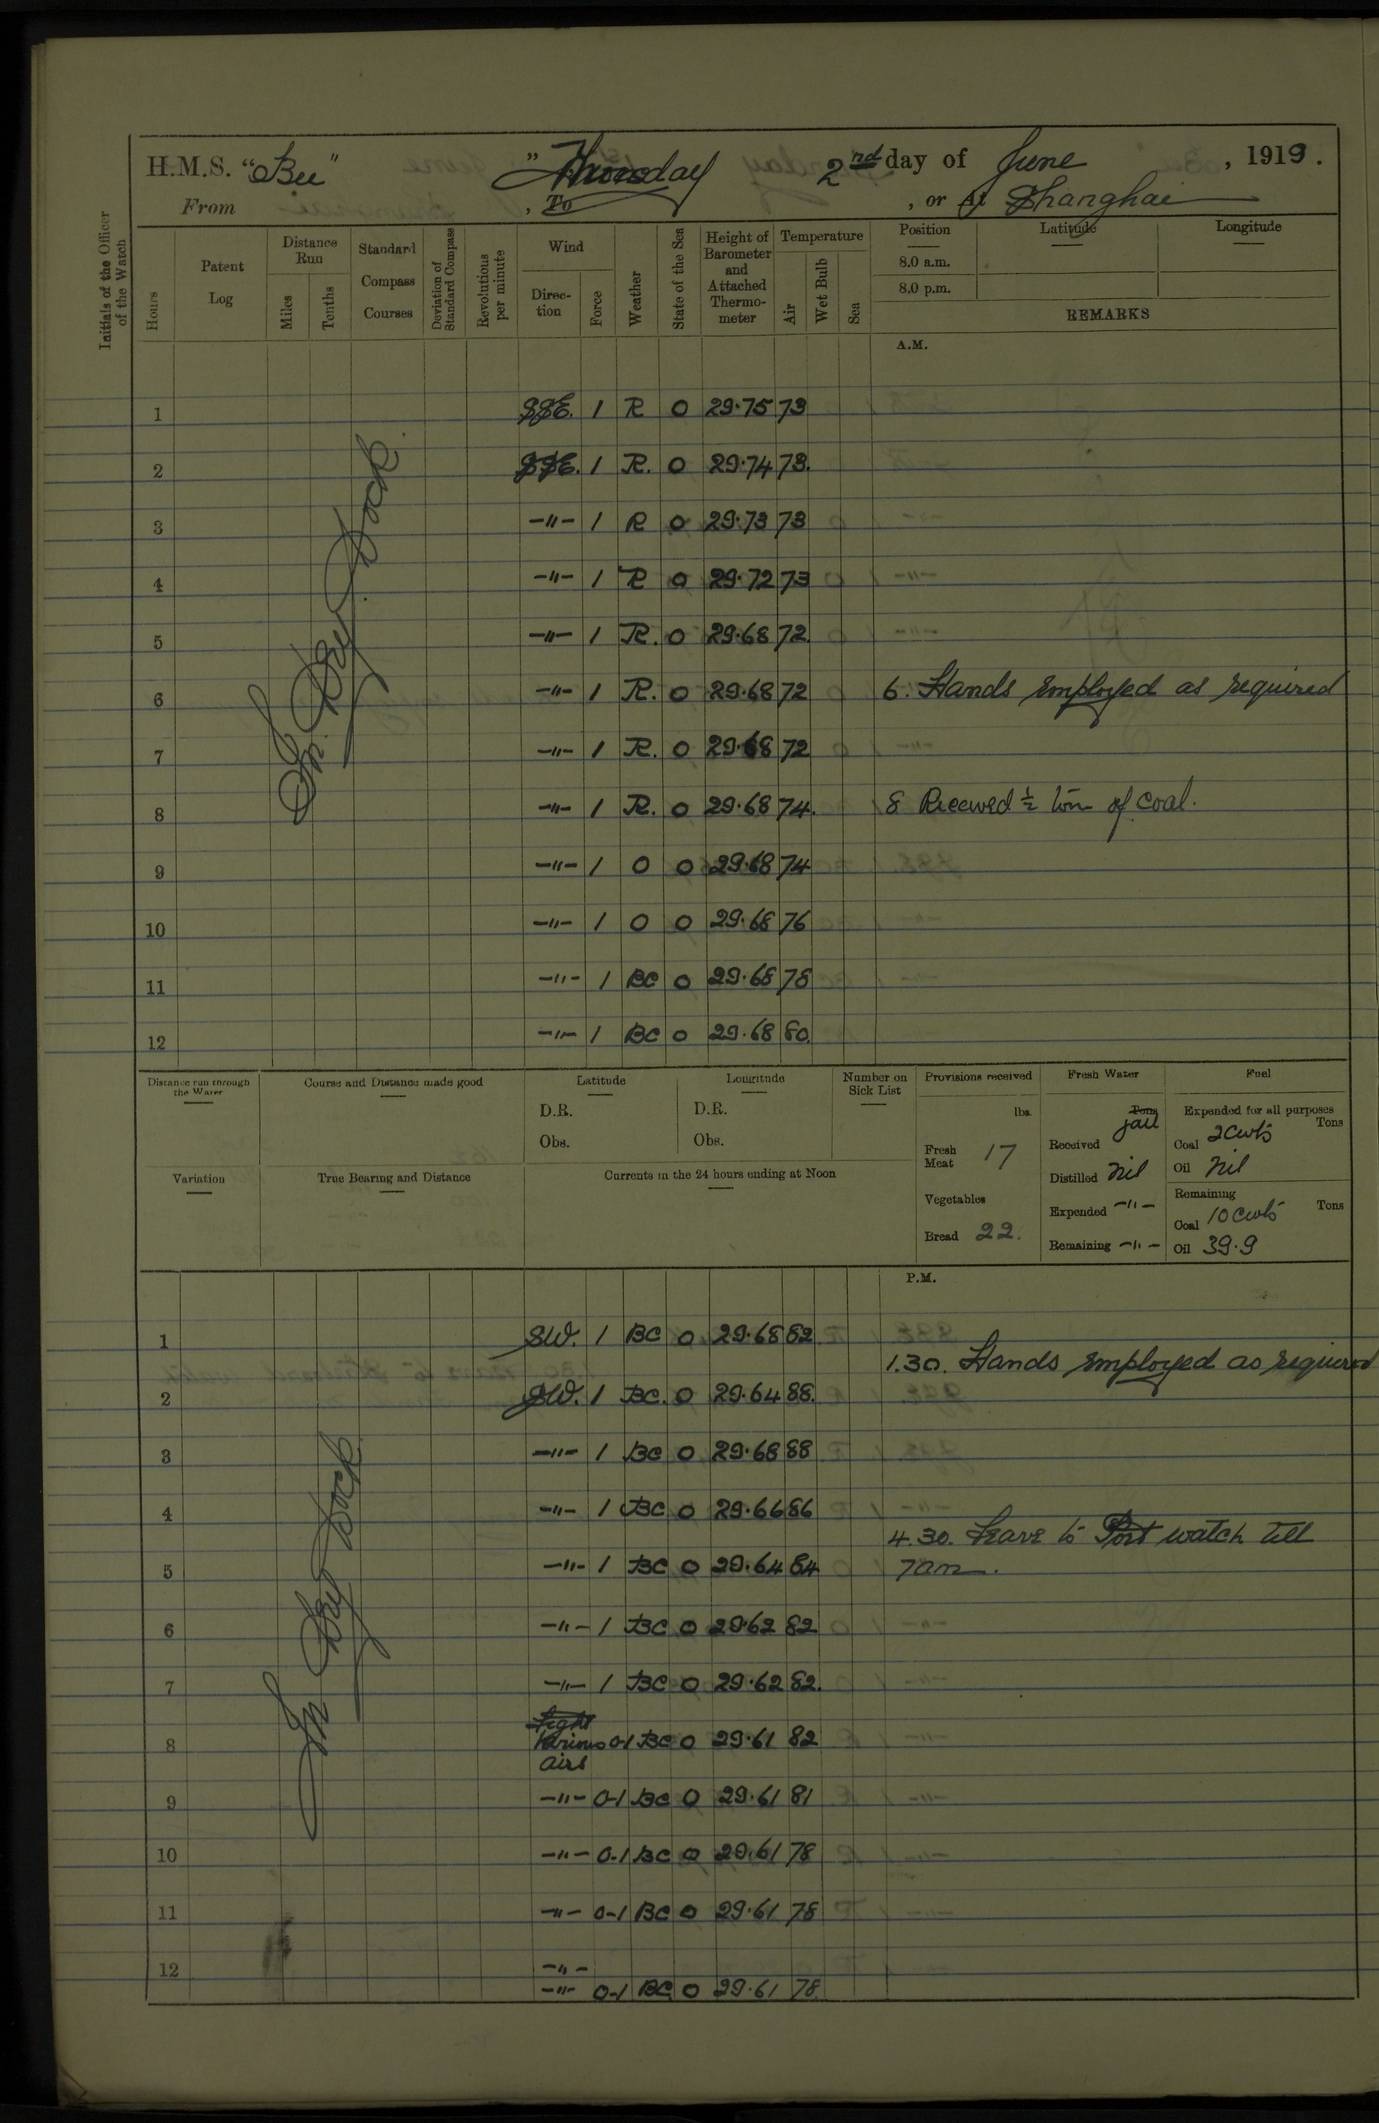 H.M.S. "Bee" Thursday 2nd day of June, 1919.
From , To , or At Shanghai
Initials of the Officer of the Watch
Hours
Patent Log
Distance Run
Miles
Tenths
Standard Compass Courses
Deviation of Standard Compass
Revolutions per minute
Wind
Direction
Force
Weather
State of the Sea
Height of Barometer and Attached Thermometer
Temperature
Air
Wet Bulb
Sea
Position
8.0 a.m.
8.0 p.m.
Latitude
Longitude
REMARKS
A.M.
1 SSE. 1 R 0 29.75 73
2 SSE. 1 R. 0 29.74 73.
3 -"- 1 R 0 29.73 73
4 -"- 1 R 0 29.72 73
5 -"- 1 R. 0 29.68 72
6 -"- 1 R. 0 29.68 72 6. Hands employed as required
7 -"- 1 R. 0 29.68 72
8 -"- 1 R. 0 29.68 74. 8 Received ½ ton of coal.
9 -"- 1 O 0 29.68 74
10 -"- 1 O 0 29.68 76
11 -"- 1 BC 0 29.68 78
12 -"- 1 BC 0 29.68 80.
In Dry Dock.
Distance run through the Water
Course and Distance made good
Latitude
D.R.
Obs.
Longitude
D.R.
Obs.
Number on Sick List
Provisions received
lbs.
Fresh Meat 17
Vegetables
Bread 22.
Fresh Water
Tons
Received
Distilled Nil
Expended -"-
Remaining -"-
Fuel
Expended for all purposes
Tons
Coal 2 cwts
Oil Nil
Remaining
Tons
Coal 10 cwts
Oil 39.9
Variation
True Bearing and Distance
Currents in the 24 hours ending at Noon
P.M.
1 SW. 1 BC 0 29.68 82
1.30. Hands employed as required
2 SW. 1 BC. 0 29.64 88.
3 -"- 1 BC 0 29.68 88
4 -"- 1 BC 0 29.66 86
4.30. Leave to Port watch till
5 -"- 1 BC 0 29.64 84 7am.
6 -"- 1 BC 0 29.62 82
7 -"- 1 BC 0 29.62 82.
Light
8 Various 0-1 BC 0 29.61 82
airs
9 -"- 0-1 BC 0 29.61 81
10 -"- 0-1 BC 0 29.61 78
11 -"- 0-1 BC 0 29.61 78
12 -"-
-"- 0-1 BC 0 29.61 78
In Dry Dock.